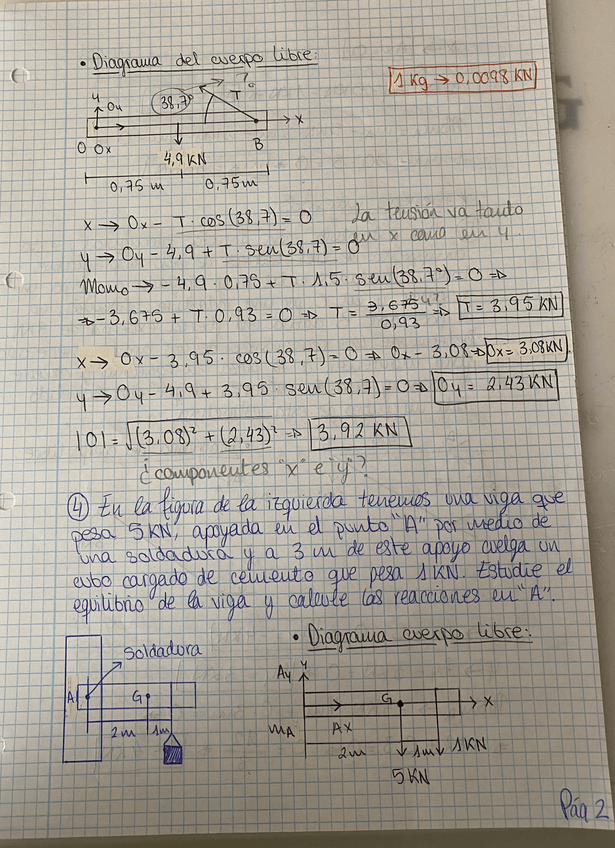 • Diagrama del cuerpo libre:
1 Kg → 0,0098 KN
y
Oy
38,7º
?
T
x
O Ox
4,9 KN
B
0,75 m
0,75 m
x → Ox - T · cos (38,7) = 0
La tensión va tanto
en x como en y.
y → Oy - 4,9 + T · sen (38,7) = 0
Momo → - 4,9 · 0,75 + T · 1,5 · sen (38,7º) = 0 ⇒
⇒ - 3,675 + T · 0,93 = 0 ⇒ T = 3,675 / 0,93 ⇒ T = 3,95 KN
x → Ox - 3,95 · cos (38,7) = 0 ⇒ Ox - 3,08 ⇒ Ox = 3,08 KN
y → Oy - 4,9 + 3,95 · sen (38,7) = 0 ⇒ Oy = 2,43 KN
|O| = √(3,08)² + (2,43)² ⇒ 3,92 KN
¿componentes "x" e "y"?
④ En la figura de la izquierda tenemos una viga que
pesa 5 KN, apoyada en el punto "A" por medio de
una soldadura y a 3 m de este apoyo cuelga un
cubo cargado de cemento que pesa 1 KN. Estudie el
equilibrio de la viga y calcule las reacciones en "A".
• Diagrama cuerpo libre:
Soldadura
A
G
2m
1m
Ay
y
G
x
MA
Ax
2m
1m
1 KN
5 KN
Pág 2